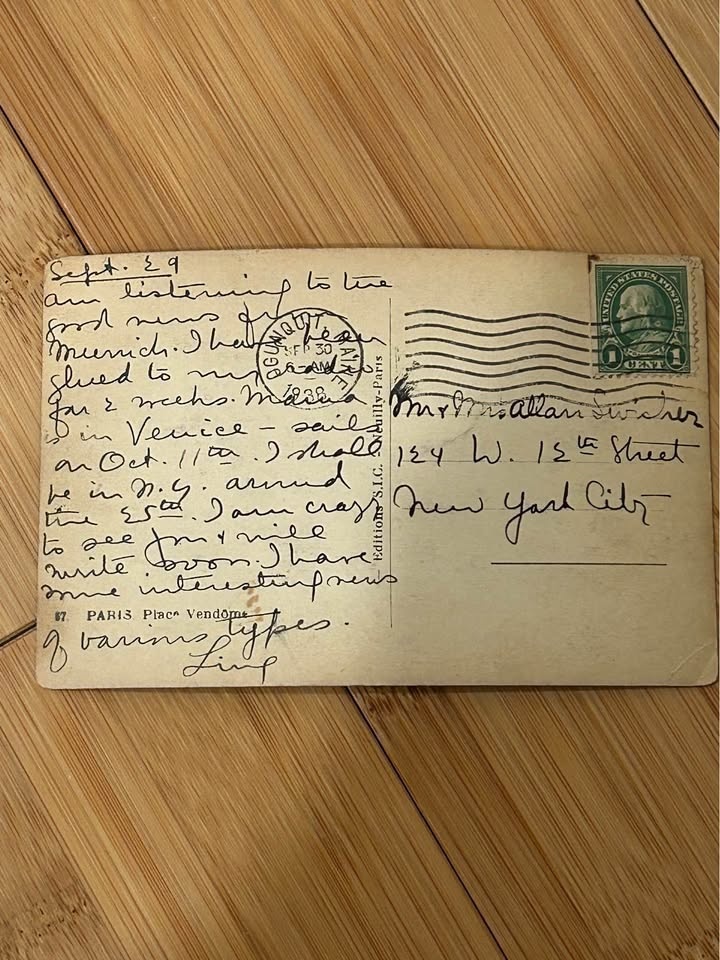 Sept. 29
am listening to the
good news from
Munich. I have been
glued to my radio
for 2 weeks. Mama
is in Venice – sails
on Oct. 11th. I shall
be in N.Y. around
the 25th. I am crazy
to see you & will
write soon. I have
some interesting news
of various types.
Ling
67 PARIS Place Vendôme
Editions S.I.C. Neuilly-Paris
OGUNQUIT MAINE
SEP 30
AM
1938
UNITED STATES POSTAGE
1 CENT 1
Mr & Mrs Allan
124 W. 12th Street
New York City